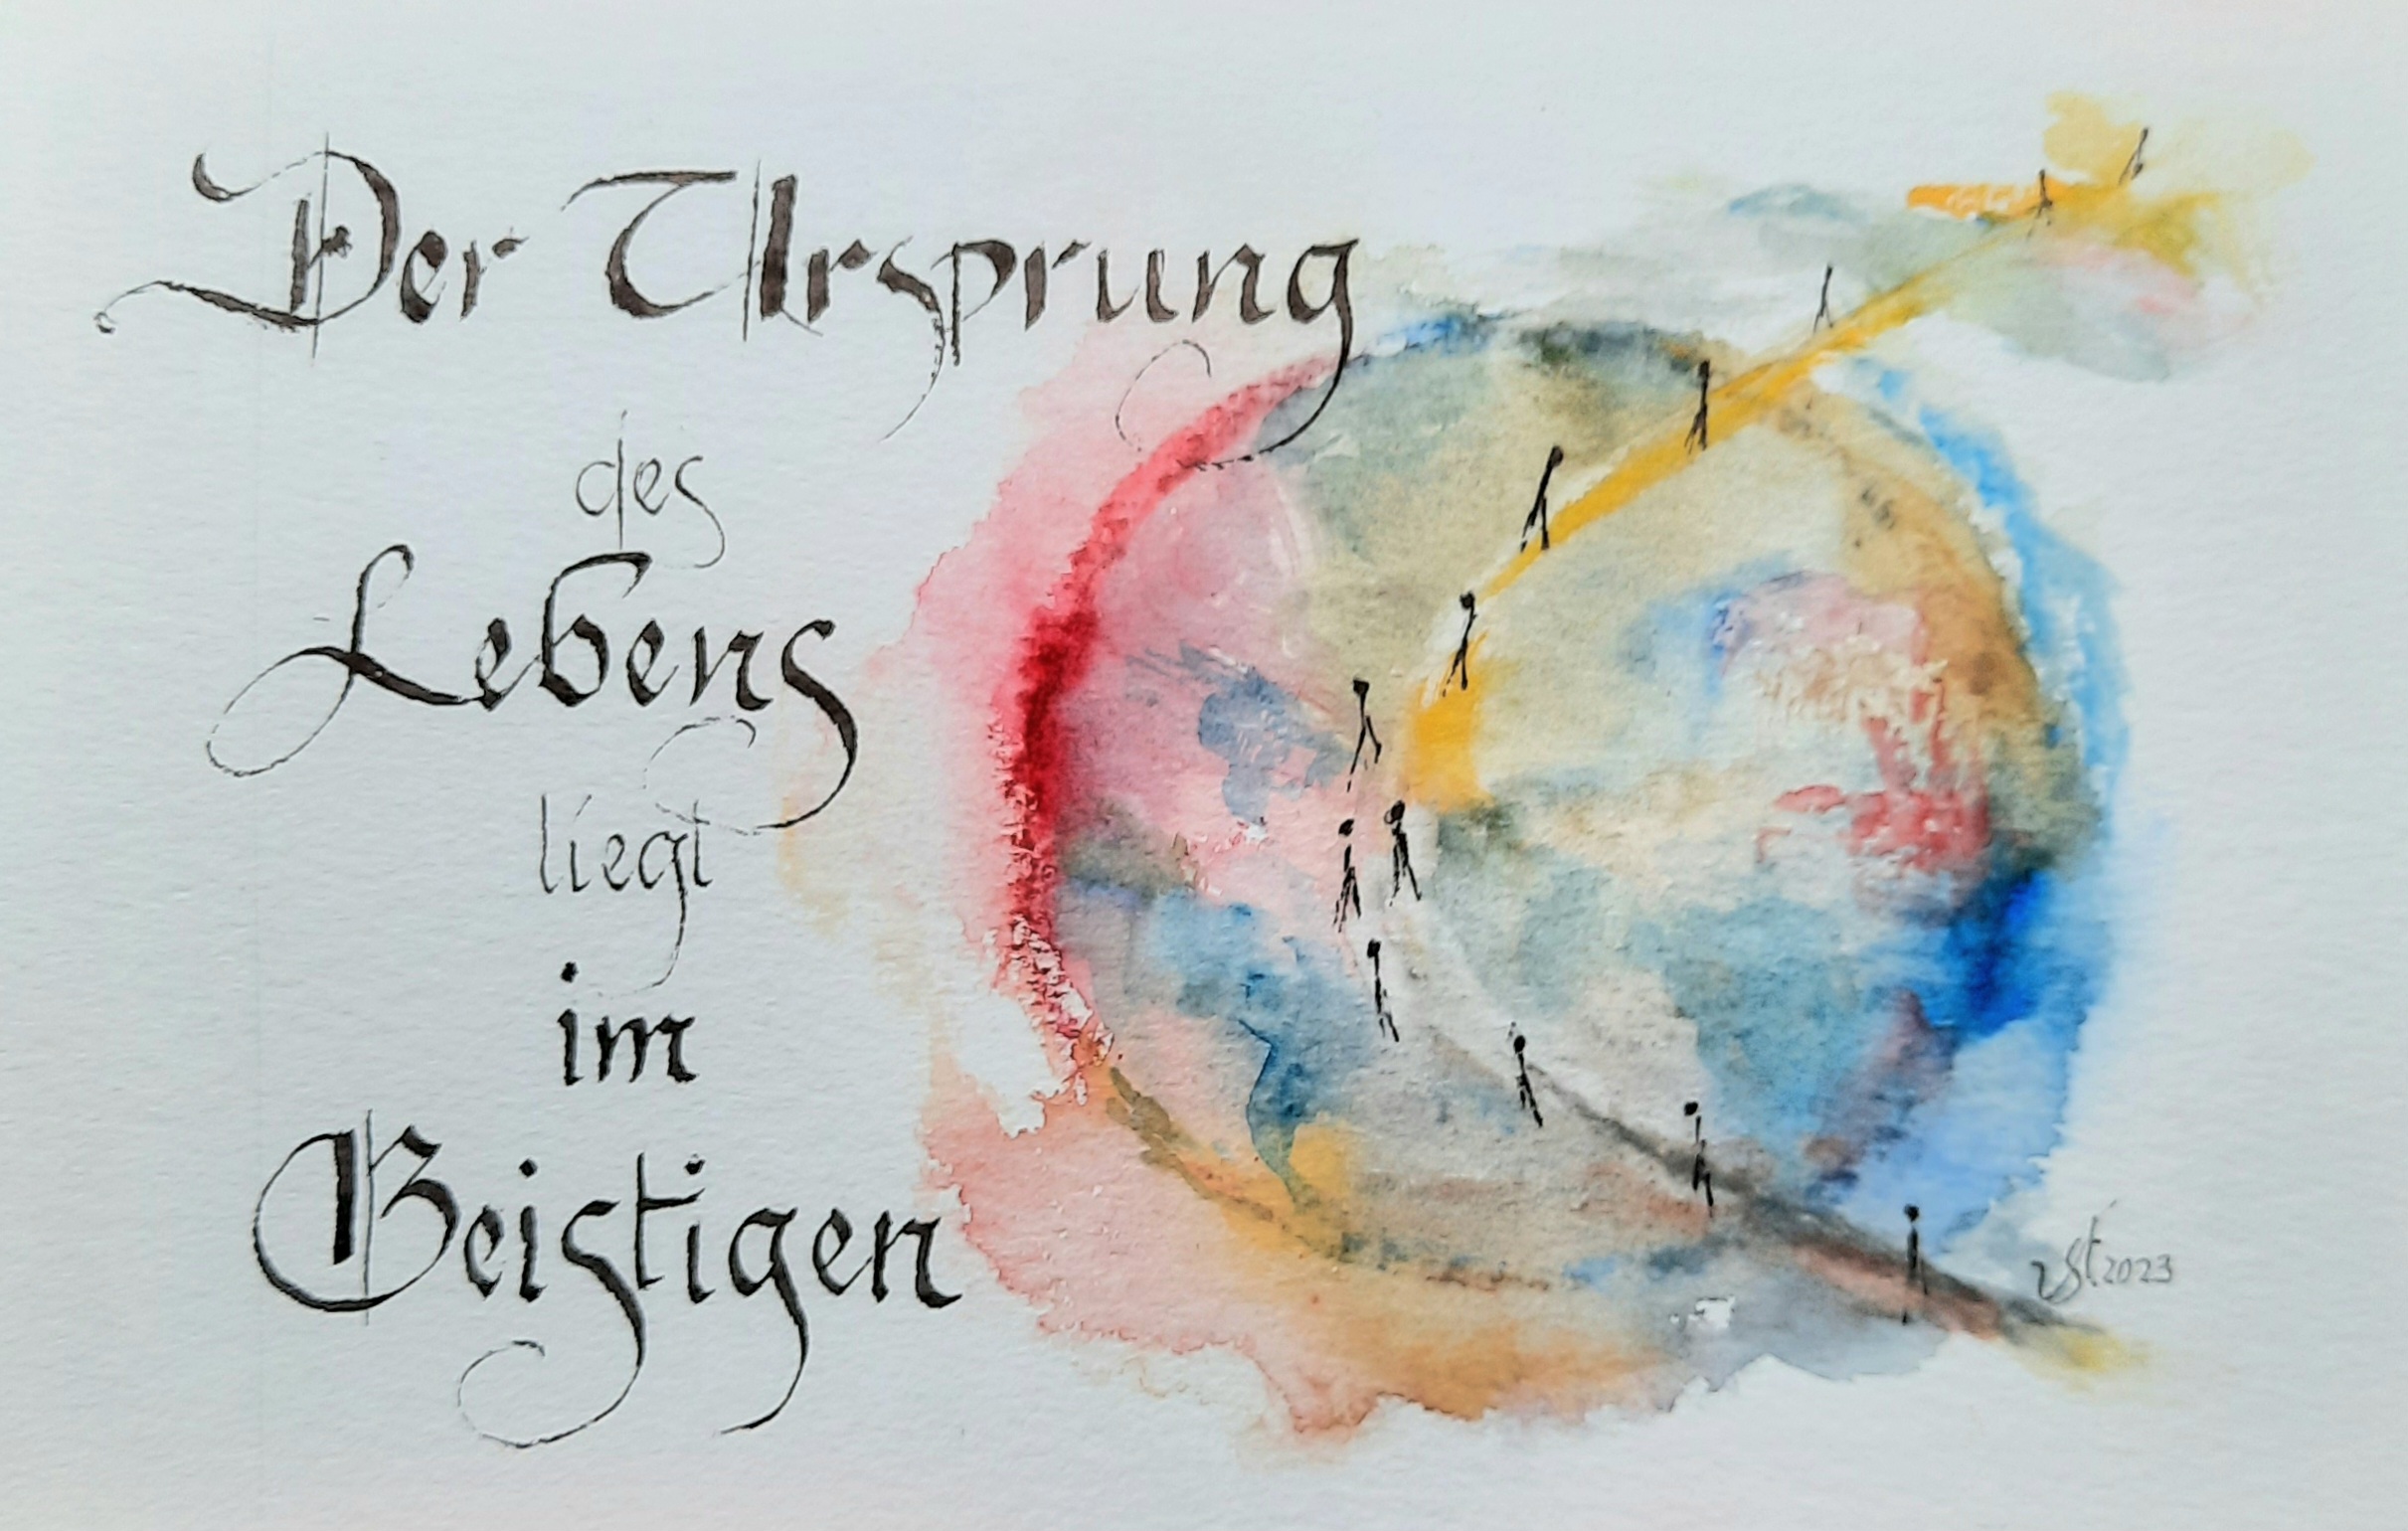 Der Ursprung
des
Lebens
liegt
im
Geistigen
2023